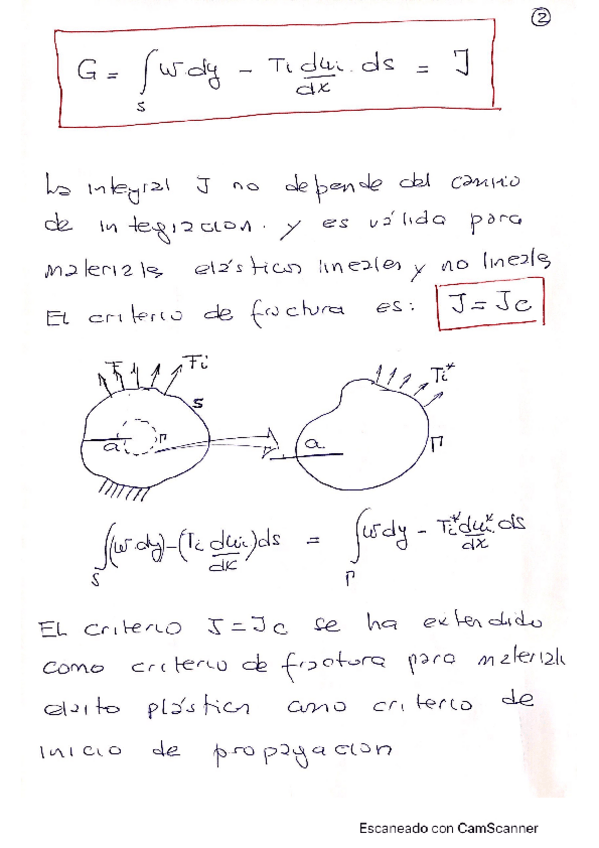 ②
G = ∫_S W dy − Ti dui/dx . ds = J
La integral J no depende del camino
de integracion. y es válida para
materiales elásticos lineales y no lineales
El criterio de fractura es: J = Jc
Fi
S
a Γ
Ti*
a Γ
∫_S (W.dy) − (Ti dui/dx) ds = ∫_Γ W dy − Ti* dui*/dx . ds
El criterio J = Jc se ha extendido
como criterio de fractura para material
elasto plástica como criterio de
inicio de propagacion
Escaneado con CamScanner